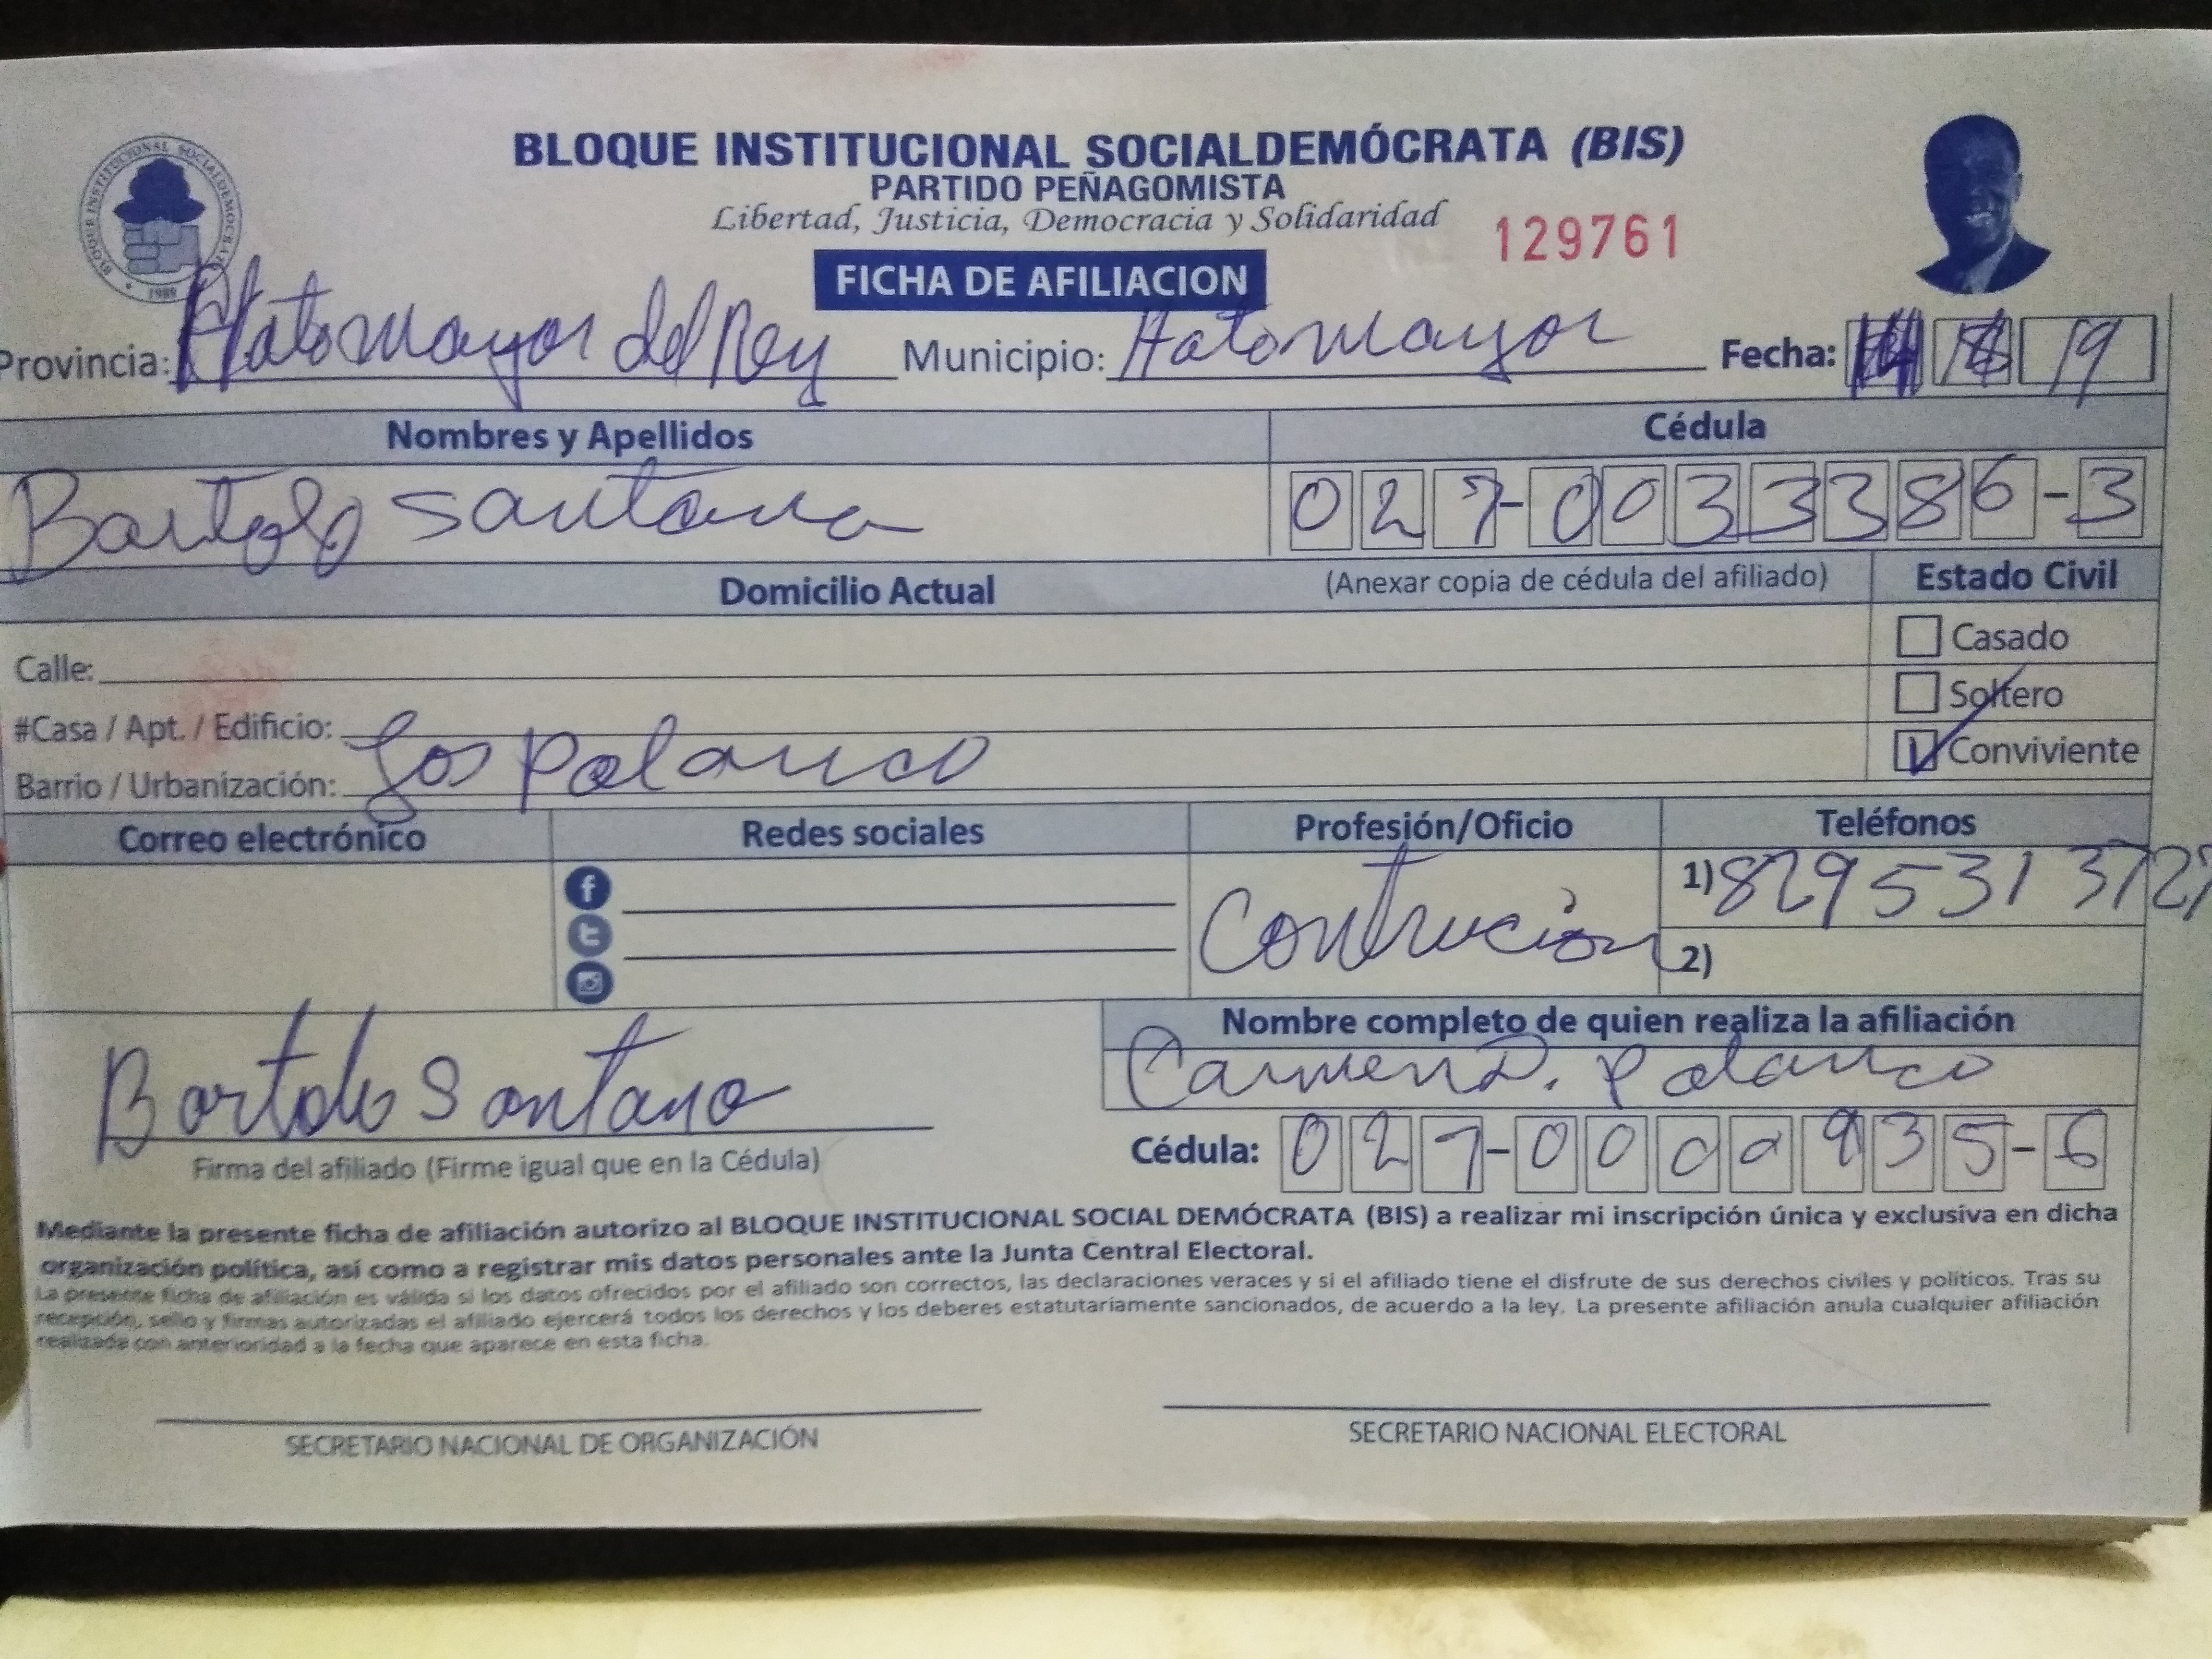 BLOQUE INSTITUCIONAL SOCIALDEMÓCRATA (BIS)
PARTIDO PEÑAGOMISTA
Libertad, Justicia, Democracia y Solidaridad
129761
BLOQUE INSTITUCIONAL SOCIALDEMOCRATA
1989
FICHA DE AFILIACION
Provincia: Hato Mayor del Rey Municipio: Hato mayor Fecha: 19
Nombres y Apellidos Cédula
Bartolo Santana 027-0033386-3
Domicilio Actual (Anexar copia de cédula del afiliado) Estado Civil
Casado
Calle:
Soltero
#Casa / Apt. / Edificio:
Conviviente
Barrio / Urbanización: Los Polanco
Correo electrónico Redes sociales Profesión/Oficio Teléfonos
Contrucion 1) 829 531 3727
2)
Nombre completo de quien realiza la afiliación
Carmen D. Polanco
Bartolo Santana
Cédula: 027-0000935-6
Firma del afiliado (Firme igual que en la Cédula)
Mediante la presente ficha de afiliación autorizo al BLOQUE INSTITUCIONAL SOCIAL DEMÓCRATA (BIS) a realizar mi inscripción única y exclusiva en dicha
organización política, así como a registrar mis datos personales ante la Junta Central Electoral.
La presente ficha de afiliación es válida si los datos ofrecidos por el afiliado son correctos, las declaraciones veraces y si el afiliado tiene el disfrute de sus derechos civiles y políticos. Tras su
recepción, sello y firmas autorizadas el afiliado ejercerá todos los derechos y los deberes estatutariamente sancionados, de acuerdo a la ley. La presente afiliación anula cualquier afiliación
realizada con anterioridad a la fecha que aparece en esta ficha.
SECRETARIO NACIONAL DE ORGANIZACIÓN SECRETARIO NACIONAL ELECTORAL